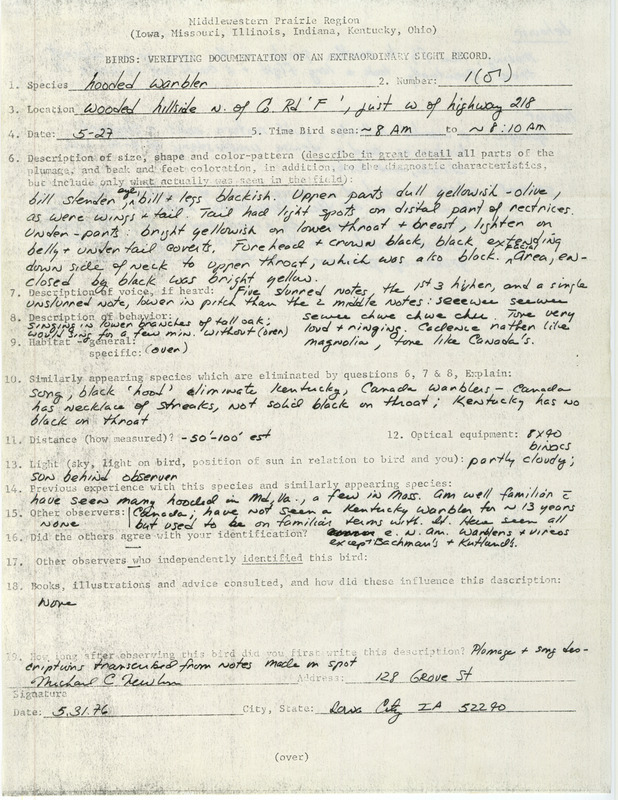 Middlewestern Prairie Region
(Iowa, Missouri, Illinois, Indiana, Kentucky, Ohio)
BIRDS: VERIFYING DOCUMENTATION OF AN EXTRAORDINARY SIGHT RECORD.
1. Species hooded warbler 2. Number: 1(♂)
3. Location wooded hillside n. of Co. Rd 'F', just w of highway 218
4. Date: 5-27 5. Time Bird seen: ~8 AM to ~8:10 AM
6. Description of size, shape and color-pattern (describe in great detail all parts of the
plumage, and beak and feet coloration, in addition, to the diagnostic characteristics,
but include only what actually was seen in the field):
bill slender, eye, bill + legs blackish. Upper parts dull yellowish-olive,
as were wings + tail. Tail had light spots on distal part of rectrices.
Under-parts: bright yellowish on lower throat + breast, lighten on
belly + undertail coverts. Forehead + crown black, black extending
down side of neck to upper throat, which was also black. facial Area, en-
closed by black was bright yellow.
7. Description of voice, if heard: Five slurred notes, the 1st 3 higher, and a single
unslurred note, lower in pitch than the 2 middle notes: seeewee seewee
8. Description of behavior: seewee chwe chwee chu. Tone very
singing in lower branches of tall oak; loud + ringing. Cadence rather like
would sing for a few min. without (over)
9. Habitat - general: magnolia, tone like Canada's.
specific: (over)
10. Similarly appearing species which are eliminated by questions 6, 7 & 8, Explain:
song, black 'hood' eliminate Kentucky, Canada warblers - Canada
has necklace of streaks, not solid black on throat; Kentucky has no
black on throat
11. Distance (how measured)? ~50'-100' est 12. Optical equipment: 8x40
binocs
13. Light (sky, light on bird, position of sun in relation to bird and you): partly cloudy;
sun behind observer
14. Previous experience with this species and similarly appearing species:
have seen many hooded in Md, Va., a few in Mass. Am well familiar c̄
15. Other observers: Canada; have not seen a Kentucky warbler for ~13 years
none but used to be on familiar terms with it. Have seen all
16. Did the others agree with your identification? e. N. Am. Warblers + vireos
except Bachman's + Kirtland's.
17. Other observers who independently identified this bird:
18. Books, illustrations and advice consulted, and how did these influence this description:
None
19. How long after observing this bird did you first write this description? Plumage + song des-
criptions transcribed from notes made on spot
Michael C Newlon Address: 128 Grove St
Signature
Date: 5.31.76 City, State: Iowa City IA 52240
(over)